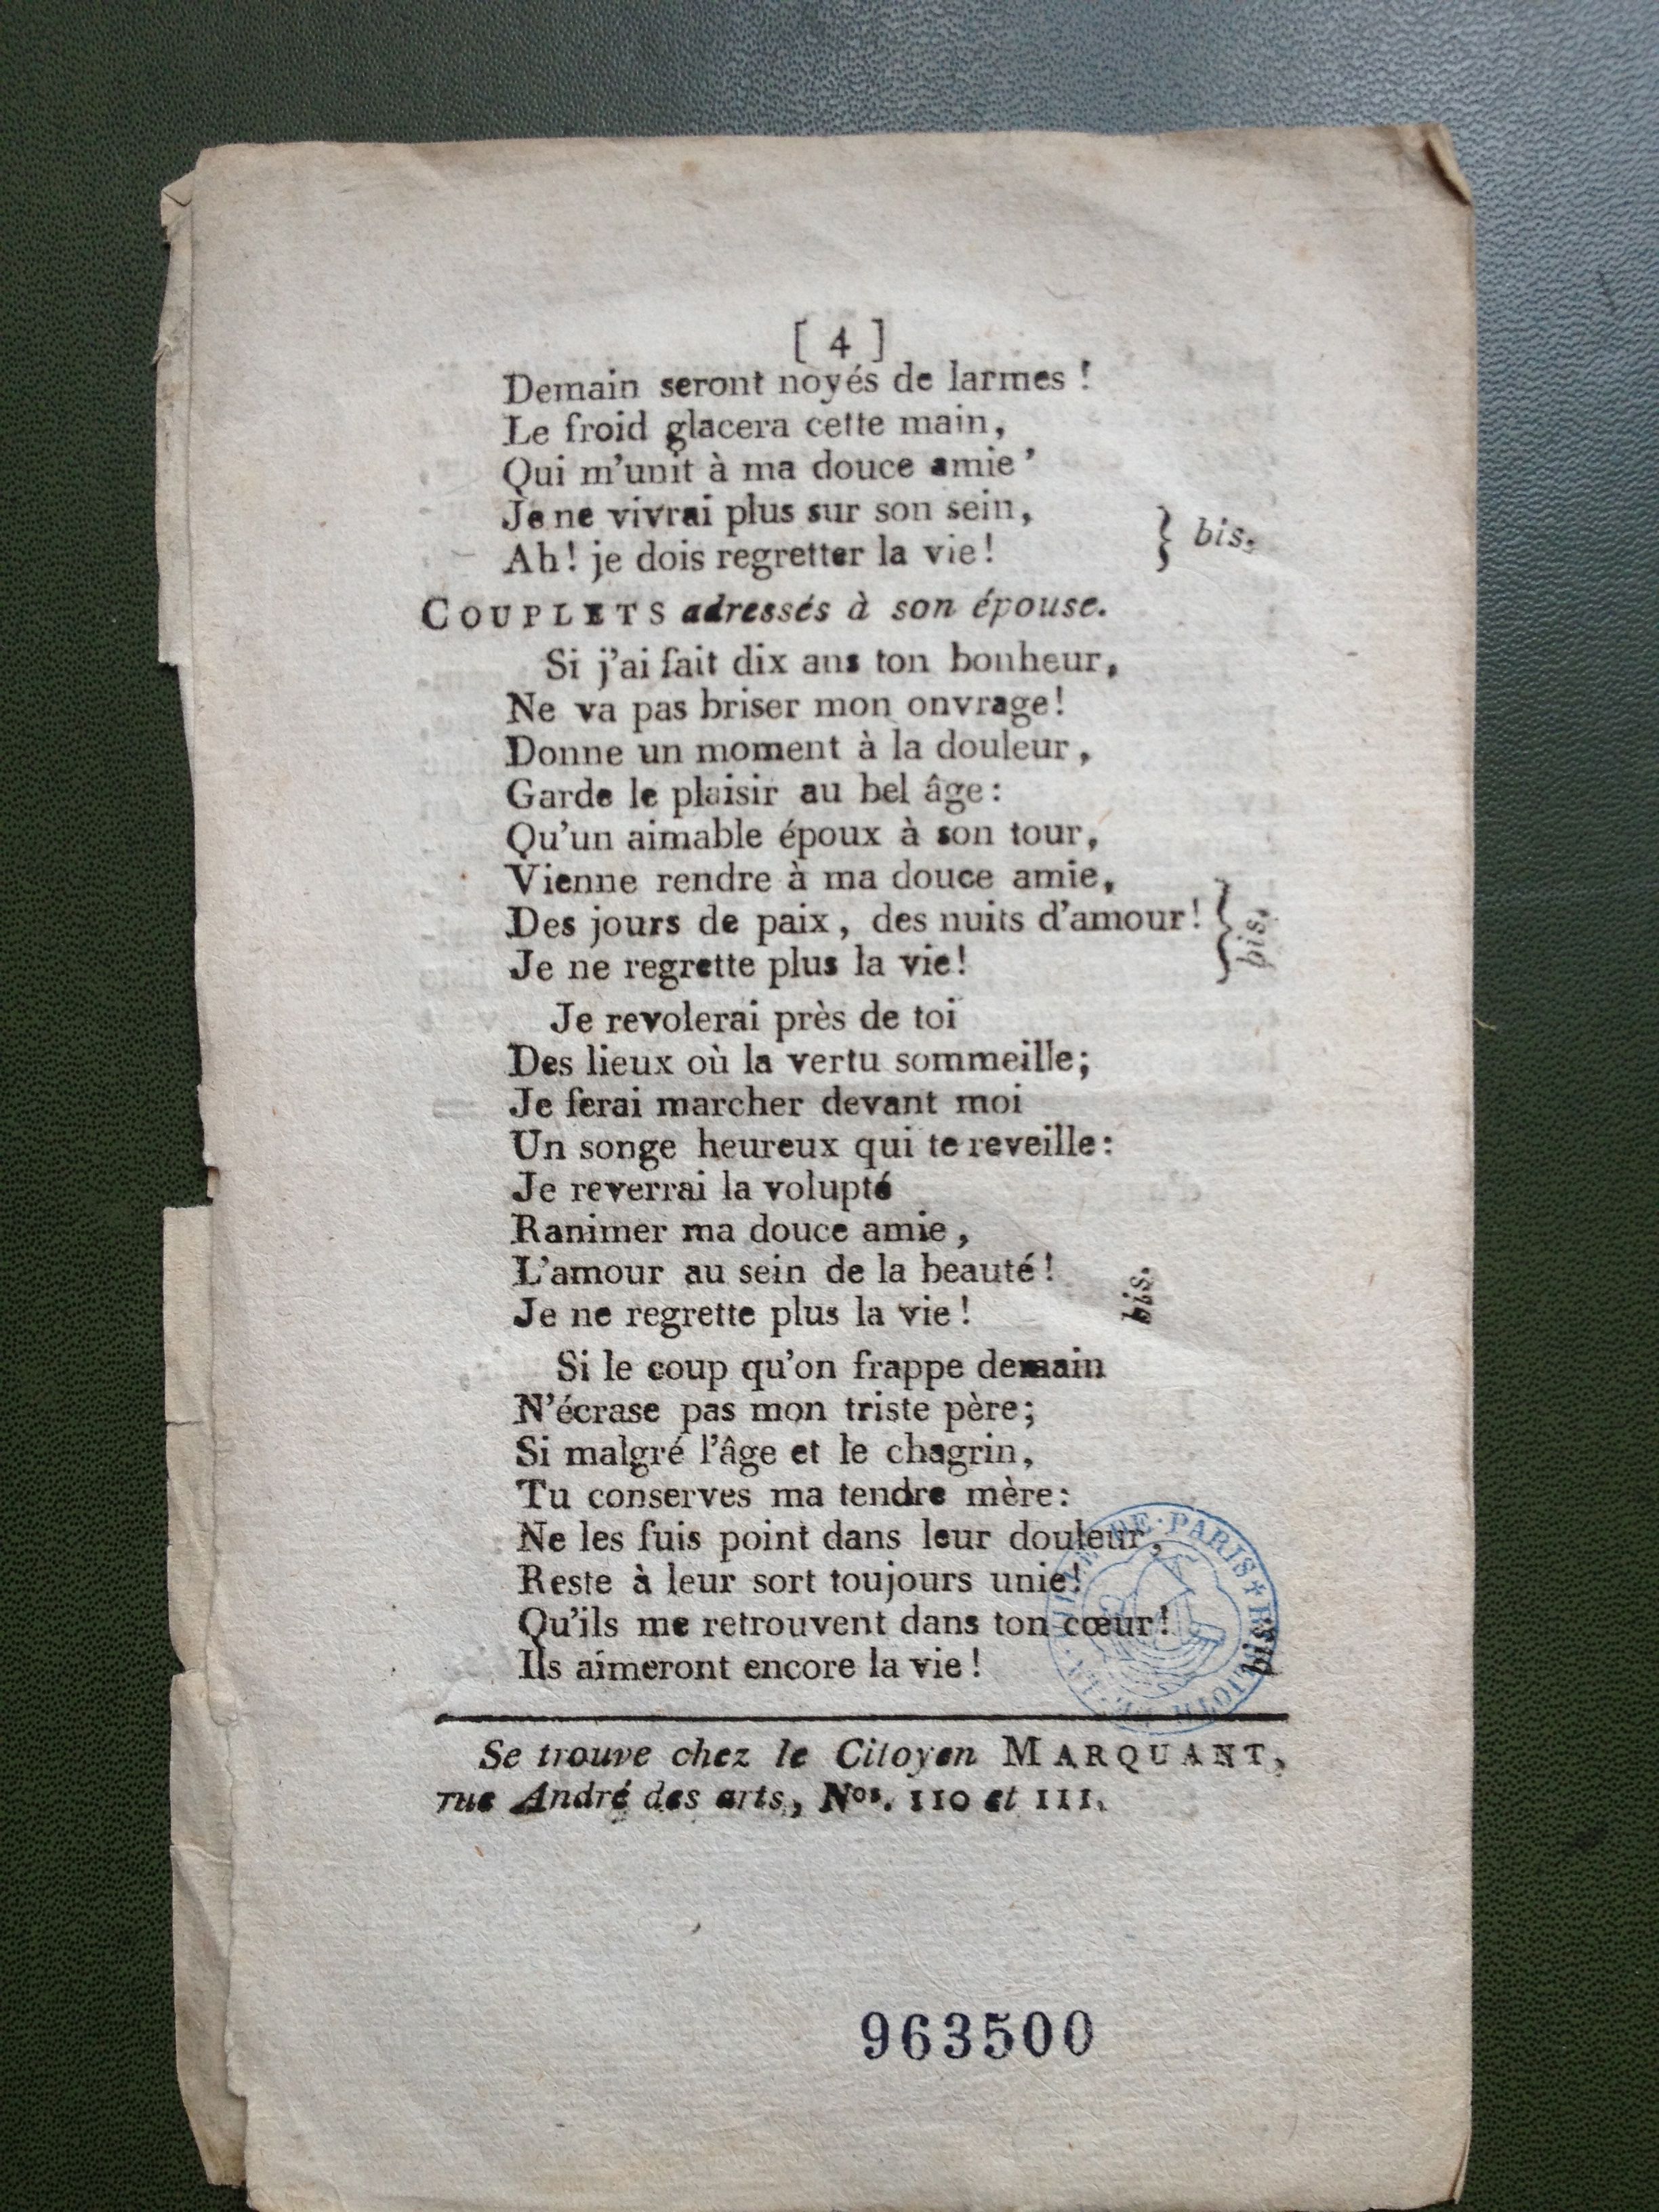 [ 4 ]
Demain seront noyés de larmes !
Le froid glacera cette main,
Qui m'unit à ma douce amie '
Je ne vivrai plus sur son sein,
Ah ! je dois regretter la vie ! } bis.
COUPLETS adressés à son épouse.
Si j'ai fait dix ans ton bonheur,
Ne va pas briser mon onvrage !
Donne un moment à la douleur ,
Garde le plaisir au bel âge :
Qu'un aimable époux à son tour,
Vienne rendre à ma douce amie,
Des jours de paix , des nuits d'amour !
Je ne regrette plus la vie ! } bis.
Je revolerai près de toi
Des lieux où la vertu sommeille ;
Je ferai marcher devant moi
Un songe heureux qui te reveille :
Je reverrai la volupté
Ranimer ma douce amie ,
L'amour au sein de la beauté !
Je ne regrette plus la vie ! bis.
Si le coup qu'on frappe demain
N'écrase pas mon triste père ;
Si malgré l'âge et le chagrin,
Tu conserves ma tendre mère :
Ne les fuis point dans leur douleur,
Reste à leur sort toujours unie !
Qu'ils me retrouvent dans ton cœur !
Ils aimeront encore la vie ! bis
DE PARIS
Se trouve chez le Citoyen MARQUANT,
rue André des arts, Nos. 110 et 111.
963500